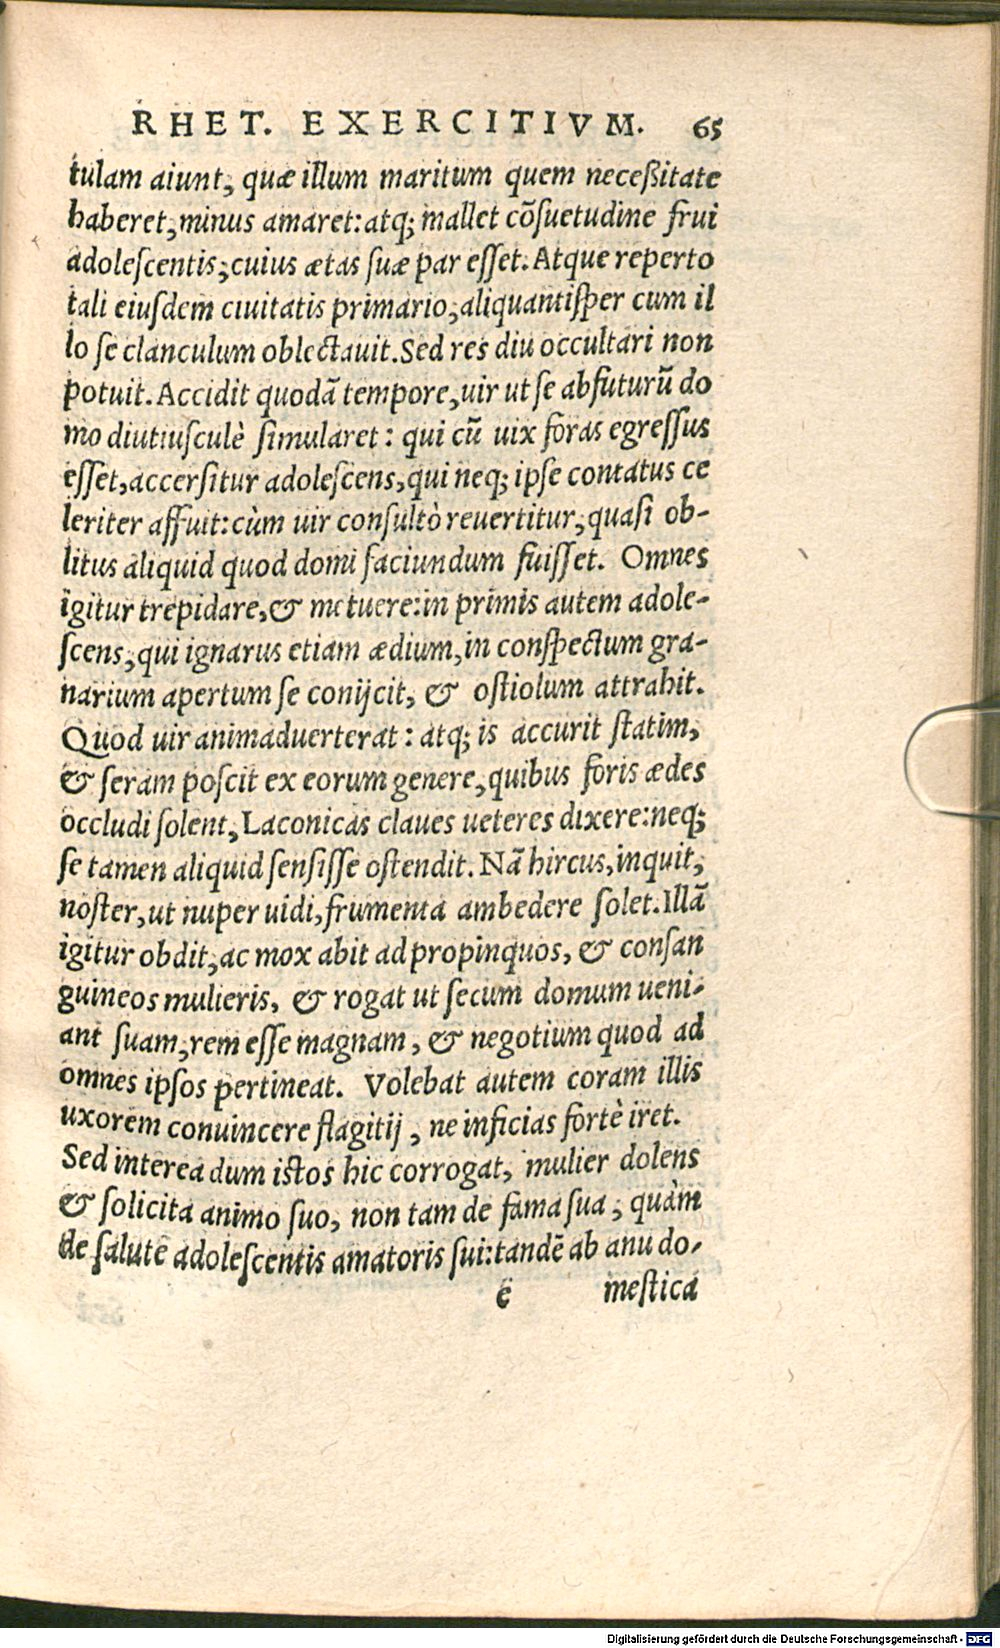 RHET. EXERCITIVM. 65
tulam aiunt, quæ illum maritum quem neceßitate
haberet, minus amaret: atq; mallet cõsuetudine frui
adolescentis, cuius ætas suæ par esset. Atque reperto
tali eiusdem ciuitatis primario, aliquantisper cum il
lo se clanculum oblectauit. Sed res diu occultari non
potuit. Accidit quodã tempore, uir ut se abfuturũ do
mo diutiusculè simularet: qui cũ uix foras egressus
esset, accersitur adolescens, qui neq; ipse contatus ce
leriter affuit: cùm uir consultò reuertitur, quasi ob-
litus aliquid quod domi faciundum fuisset. Omnes
igitur trepidare, & metuere: in primis autem adole-
scens, qui ignarus etiam ædium, in conspectum gra-
narium apertum se conijcit, & ostiolum attrahit.
Quod uir animaduerterat: atq; is accurit statim,
& seram poscit ex eorum genere, quibus foris ædes
occludi solent, Laconicas claues ueteres dixere: neq;
se tamen aliquid sensisse ostendit. Nã hircus, inquit,
noster, ut nuper uidi, frumenta ambedere solet. Illã
igitur obdit, ac mox abit ad propinquos, & consan
guineos mulieris, & rogat ut secum domum ueni-
ant suam, rem esse magnam, & negotium quod ad
omnes ipsos pertineat. Volebat autem coram illis
uxorem conuincere flagitij, ne inficias fortè iret.
Sed interea dum istos hic corrogat, mulier dolens
& solicita animo suo, non tam de fama sua, quàm
de salute adolescentis amatoris sui: tandẽ ab anu do-
e mestica
Digitalisierung gefördert durch die Deutsche Forschungsgemeinschaft - DFG